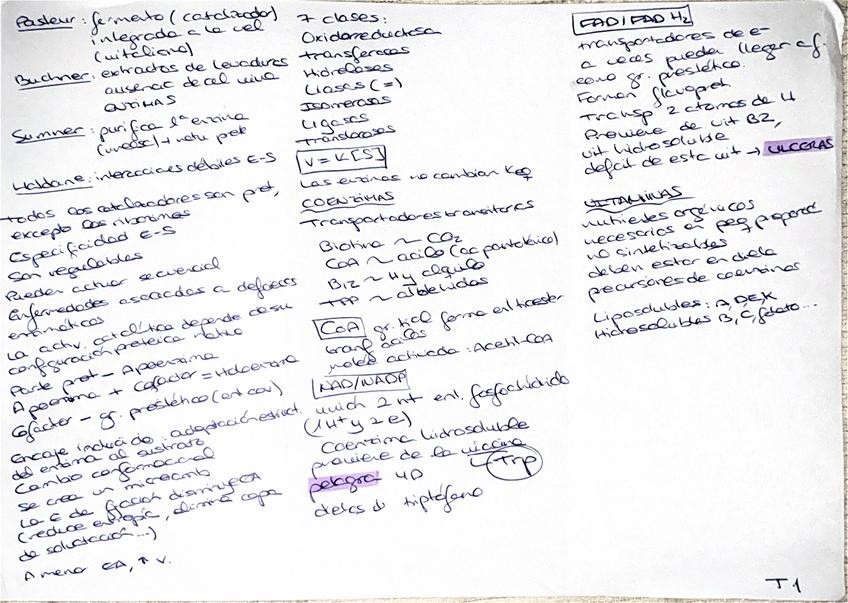 Pasteur: fermento (catalizador)
integrado a la cel
(vitalismo)
Buchner: extractos de levaduras
ausencia de cel viva
ENZIMAS
Sumner: purifica 1ª enzima
(ureasa) + natu prot
Haldane: interacciones débiles E-S
Todos los catalizadores son prot,
excepto las ribozimas
Especificidad E-S
Son regulables
Pueden actuar secuencial
Enfermedades asociadas a defectos
enzimáticos
La activ. catalítica depende de su
configuración proteica nativa
Parte prot - Apoenzima
Apoenzima + Cofactor = Holoenzima
Cofactor - gr. prostético (ent cov)
Encaje inducido: adaptación estruct.
del enzima al sustrato
Cambio conformacional
se crea un microamb
La E de fijación disminuye EA
(reduce entropía, elimina capa
de solvatación...)
A menor EA, ↑ v.
7 clases:
Oxidorreductasa
Transferasas
Hidrolasas
Liasas (=)
Isomerasas
Ligasas
Translocasas
V = K[S]
Las enzimas no cambian Keq
COENZIMAS
Transportadores transitorios
Biotina ~ CO2
CoA ~ acilo (ac pantoténico)
B12 ~ H y alquilo
TPP ~ aldehídos
CoA gr. tiol forma enl tioester
transf acilos
molec activada: Acetil-CoA
NAD/NADP
unión 2 nt enl. fosfoanhídrido
(1H+ y 2e)
Coenzima hidrosoluble
proviene de la niacina
Trp
pelagra 4D
dietas ↓ triptófano
FAD/FADH2
transportadores de e-
a veces pueden llegar a f.
como gr. prostético.
Forman flavoprot
Transp 2 átomos de H
Proviene de vit B2,
vit hidrosoluble
déficit de esta vit → ULCERAS
VITAMINAS
nutrientes orgánicos
necesarios en peq proporció
no sintetizables
deben estar en dieta
precursores de coenzimas
Liposolubles: A, D, E, K
Hidrosolubles B, C, folato...
T1